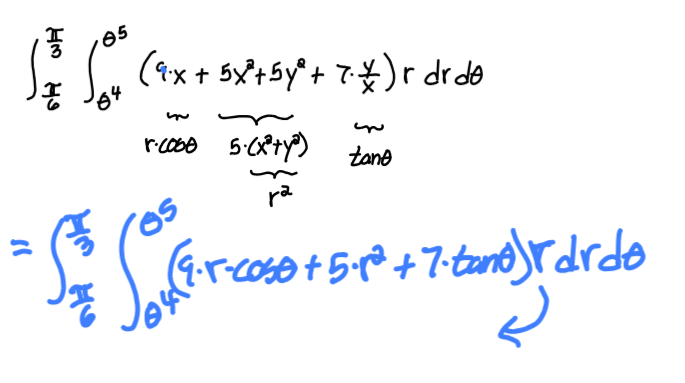 ∫_{π/6}^{π/3} ∫_{θ^4}^{θ^5} (9·x + 5x²+5y² + 7·y/x) r dr dθ
r·cosθ 5·(x²+y²) tanθ
r²
= ∫_{π/6}^{π/3} ∫_{θ^4}^{θ^5} (9·r·cosθ + 5·r² + 7·tanθ) r dr dθ